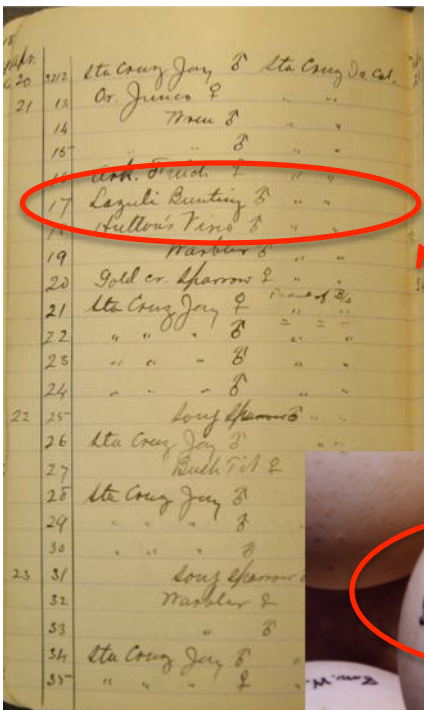 18
Apr.
20 3212 Sta Cruz Jay ♂ Sta Cruz Is. Cal.
21 13 Or. Junco ♀ " "
14 Wren ♂ " "
15 " " ♂ " "
16 Ark. Finch ♀ " "
17 Lazuli Bunting ♂ " "
18 Hutton's Vireo ♂ " "
19 Warbler ♂ " "
20 Gold cr. Sparrow ♀ " "
21 Sta Cruz Jay ♀
22 " " " ♂ " "
23 " " " ♂ " "
24 " " " ♂ " "
22 25 Song Sparrow ♂ " "
26 Sta Cruz Jay ♂ " "
27 Bush Tit ♀
28 Sta Cruz Jay ♂
29 " " " ♂
30 " " " ♂
23 31 Song Sparrow
32 Warbler ♀
33 " ♂
34 Sta Cruz Jay ♂ "
35 " " " ♀ "